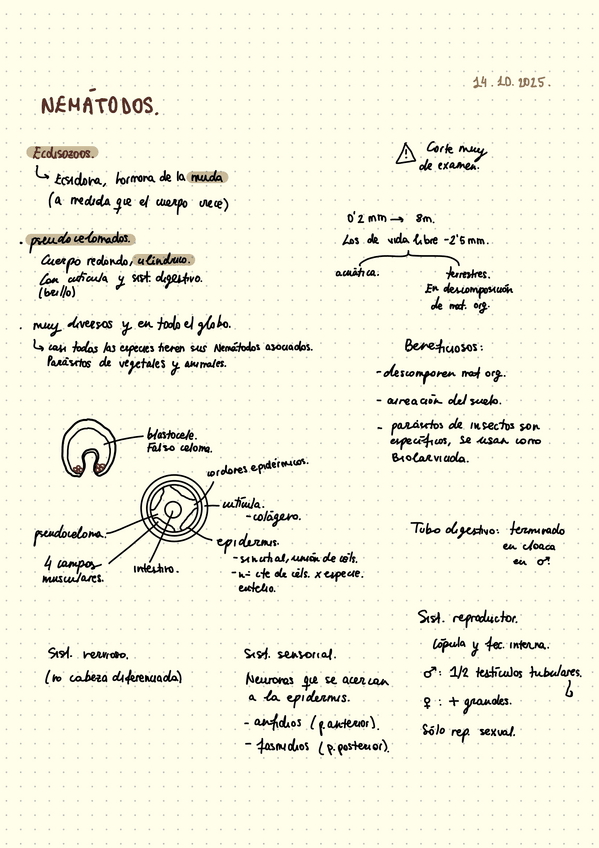 14.10.2025.
NEMÁTODOS.
Ecdisozoos.
↳ Ecsidora, hormona de la muda
(a medida que el cuerpo crece)
⚠ Corte muy
de examen.
0'2 mm → 8m.
Los de vida libre -2'5 mm.
acuática.
terrestres.
En descomposición
de mat. org.
. pseudocelomados.
Cuerpo redondo, cilíndrico.
Con cutícula y sist. digestivo.
(brillo)
. muy diversos y en todo el globo.
↳ casi todas las especies tienen sus Nemátodos asociados.
Parásitos de vegetales y animales.
Beneficiosos:
- descomponen mat org.
- aireación del suelo.
- parásitos de insectos son
específicos, se usan como
Biolarvicida.
blastocele.
Falso celoma.
cordones epidérmicos.
cutícula.
- colágeno.
epidermis.
- sincitial, unión de céls.
- nº cte de céls. x especie.
eutelio.
pseudoceloma.
4 campos
musculares.
intestino.
Tubo digestivo: terminado
en cloaca
en ♂.
Sist. nervioso.
(no cabeza diferenciada)
Sist. sensorial.
Neuronas que se acercan
a la epidermis.
- anfidios (p.anterior).
- fasmidios (p.posterior).
Sist. reproductor.
Cópula y fec. interna.
♂: 1/2 testículos tubulares.
♀: + grandes.
Sólo rep. sexual.